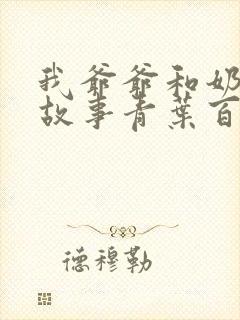 我爷爷和奶
故事青葉百
德穆勒